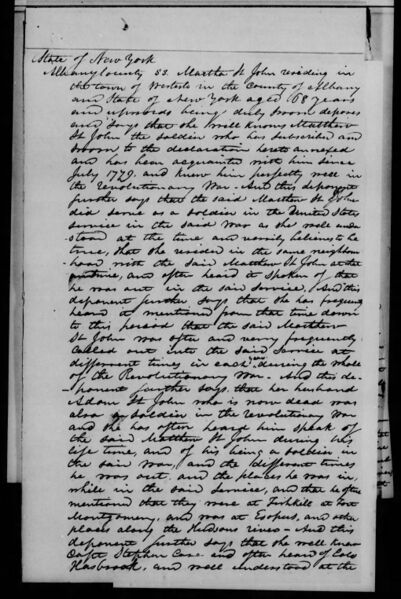 State of New York
Albany County SS. Martha St John residing in
the town of Westerlo in the County of Albany
and State of New York aged 68 years
and upwards being duly sworn deposes
and Says that she well knows Matthew
St John the soldier who has subscribed and
sworn to the declaration hereto annexed
and has been acquainted with him since
July 1779. and knew him perfectly well in
the Revolutionary War - And this deponent
further says that the said Matthew St John
did serve as a soldier in the United States
service in the said War as she well under
stood at the time and verrily believes to be
true, that she resided in the same neighbour
hood with the said Matthew St John at the
and often heard it spoken of that
he was out in the said service, And this
deponent further Says that she has frequently
heard it mentioned from that time down
to this period that the said Matthew
St John was often and verry frequently
Called out into the said service at
different times in each year during the whole
of the Revolutionary War - And this de-
ponent further says, that her husband
Adam St John who is now dead was
also a soldier in the revolutionary War
and she has often heard him speak of
the said Matthew St John during his
life time, and of his being a soldier in
the said War, and the different times
he was out, and the places he was in,
while in the said Service, and that he often
mentioned that they were at Fishkill at Fort
Montgomery, and was at Esopus, and other
places along the Hudsons river - And this
deponent further says that she well knew
Capt Stephen Case and often heard of Colo
Hasbrook, and well understood at the